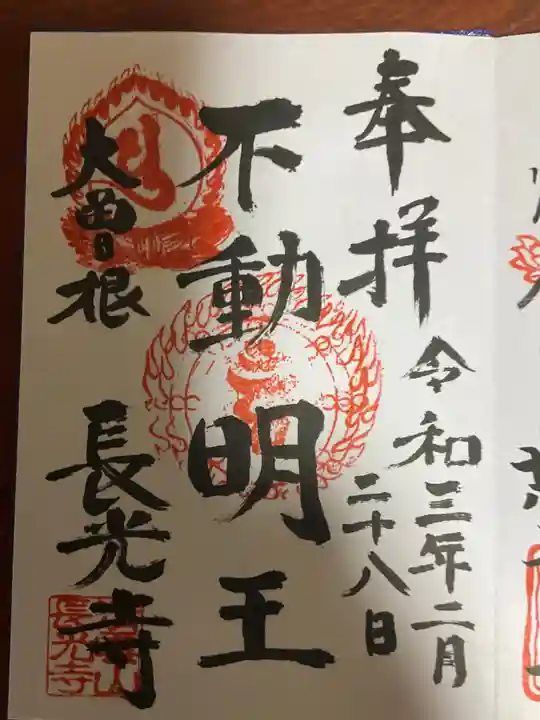 奉拝
令和三年二月
二十八日
不動明王
大曽根
長光寺
長光寺